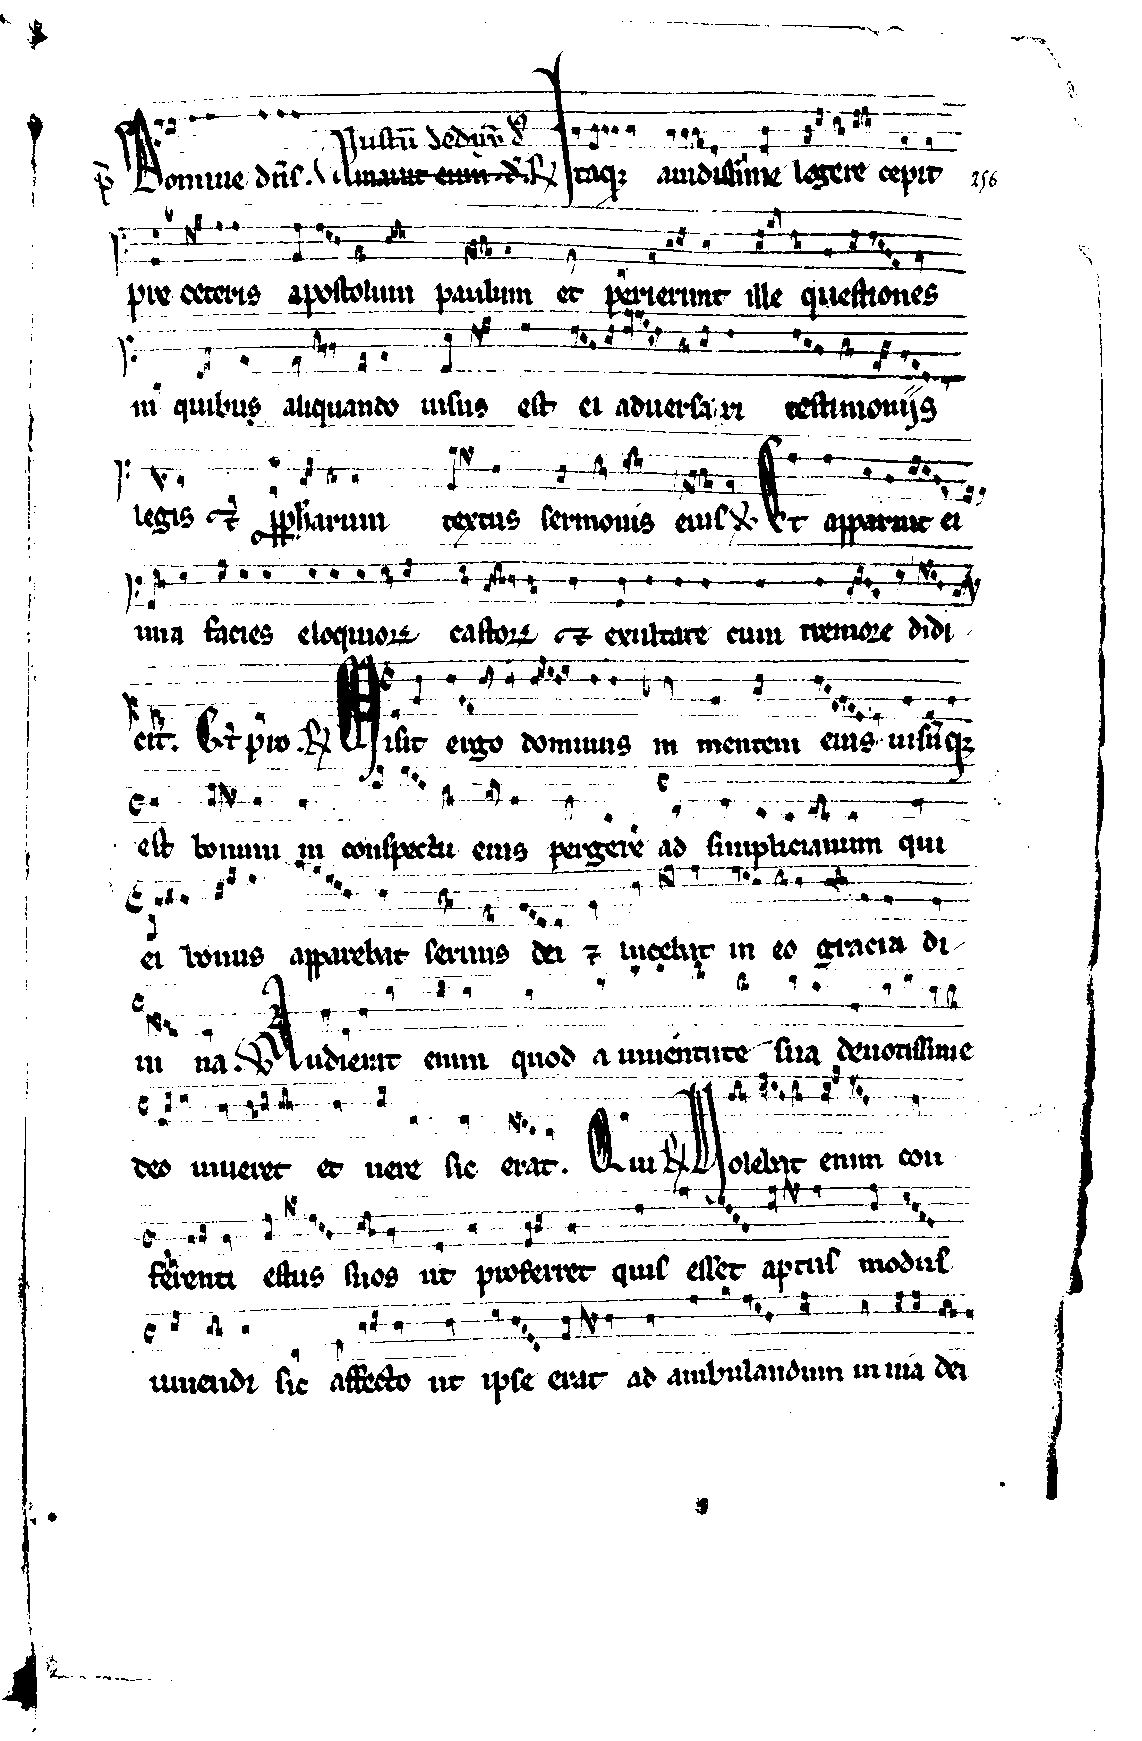 Iustū deduxͭ d̄
p̄ Domine dn̄s. V Amauit eum d̄. R Itaqꝫ auidissime legere cepit 256
pre ceteris apostolum paulum et perierunt ille questiones
in quibus aliquando uisus est ei aduersari testimonijs
legis et ꝓph̄arum textus sermonis eius V Et apparuit ei
una facies eloquioꝝ castoꝝ et exultare cum tremore didi
cit. Et perio. R Misit ergo dominus in mentem eius uisūqꝫ
est bonum in conspectu eius pergere ad simplicianum qui
ei bonus apparebat seruus dei ⁊ lucebat in eo gracia di
ui na. V Audierat enim quod a iuuentute sua deuotissime
deo uiueret et uere sic erat. Qui R Volebat enim con
ferenti estus suos ut proferret quis esset aptus modus
uiuendi sic affecto ut ipse erat ad ambulandum in uia dei